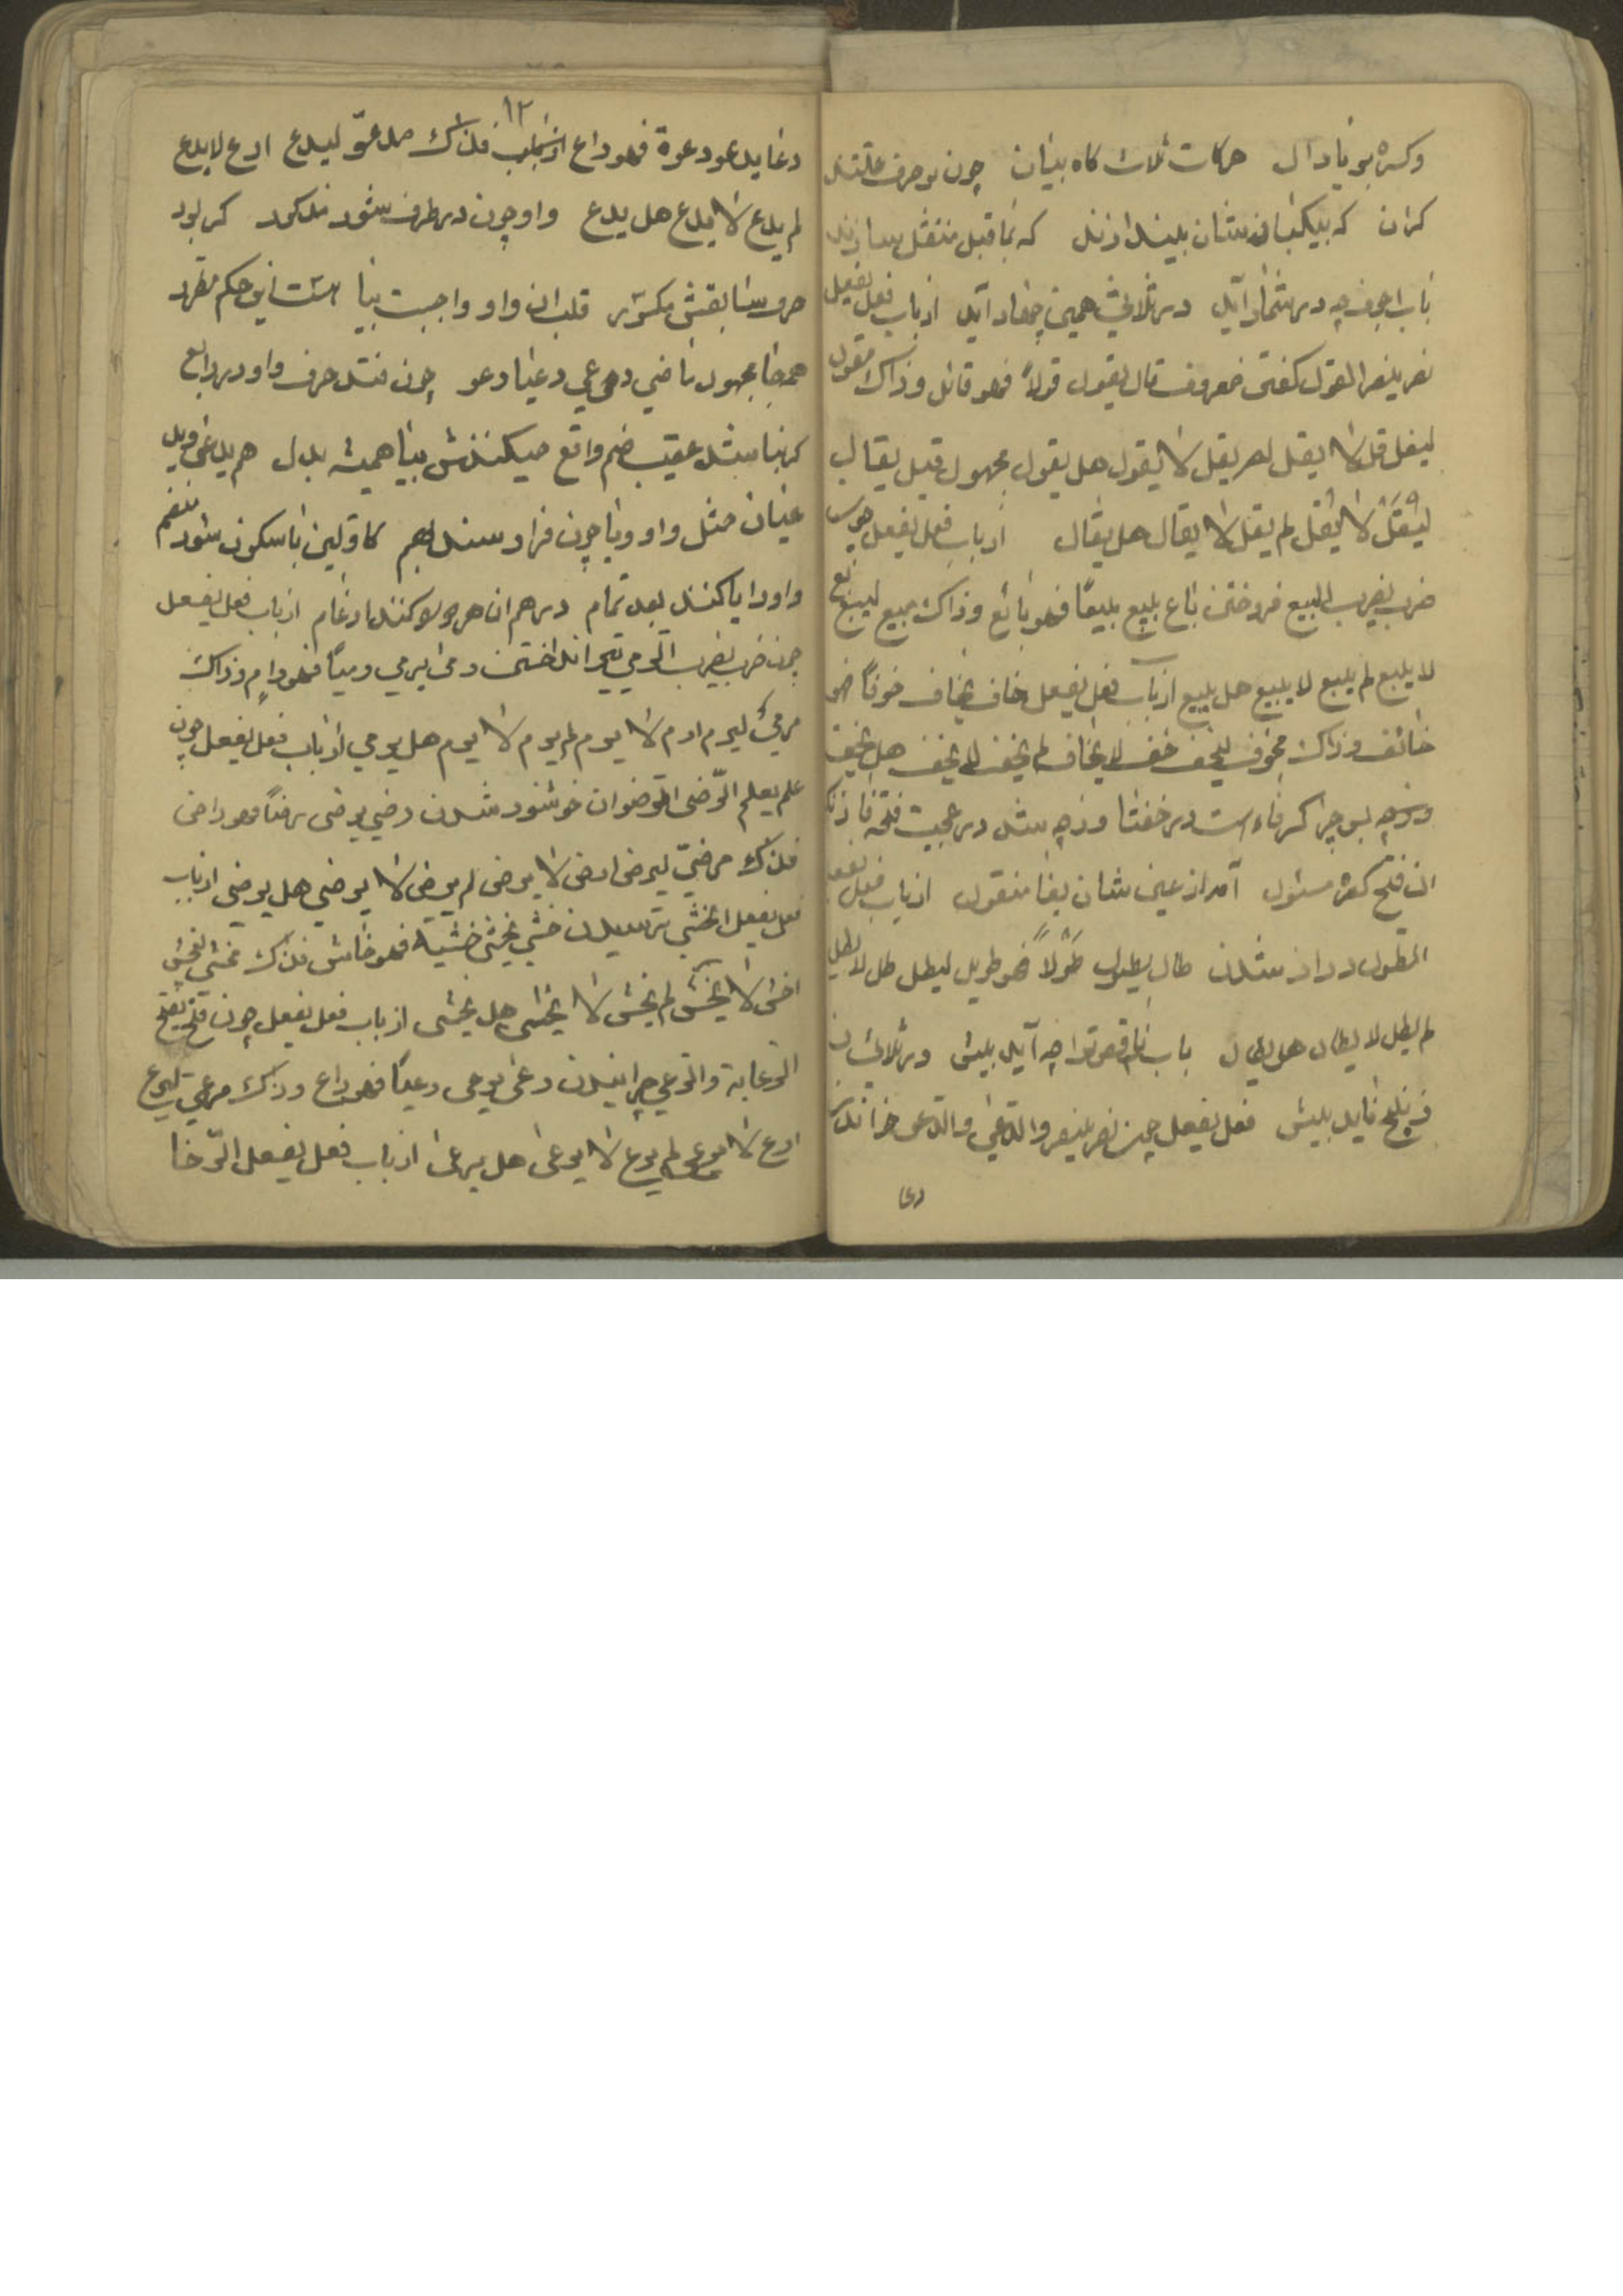 وکسره بو یا دال حرکات ثلاث کاه بینان چون بو حرف علتند
کران که بیکبار نشان بیندازند که بما قبل منتقل سازند
باب اجوف چه در شمار آید در ثلاثی همین چهار آید از باب فعل یفعل
نصر ینصر القول کفتن معروف قال یقول قولاً فهو قائل وذاک مقول
لیقل قل لا یقل لم یقل لا یقول هل یقول مجهول قیل یقال
لیقل لا یقل لم یقل لا یقال هل یقال از باب فعل یفعل چون
ضرب یضرب البیع فروختن باع یبیع بیعًا فهو بائع وذاک مبیع لیبع بع
لا یبیع لم یبع لا یبیع هل یبیع از باب فعل یفعل خاف یخاف خوفاً فهو
خائف وذاک مخوف لیخف خف لا یخاف لم یخف لا یخف هل یخف
وزچه بس چرا کسر فاء است در خفتا وزچه شد در عجبت فتحه فا
ان فتح کسره مسئول آمد از عین شان بفا منقول از باب فعل یفعل
الطول دراز شدن طال یطول طَولاً فهو طویل لیطل طل لا یطل
لم یطل لا یطال هل یطال باب ناقص ترا چه آید پیش در ثلاثی
ز پنج ناید بیش فعل یفعل چون نصر ینصر والدعی خواندن
دعا
۱۲
دعا یدعو دعوة فهو داع فذاک مدعوّ لیدع ادع لا یدع
لم یدع لا یدع هل یدع واو چون در طرف شود مذکور کر بود
حرف سابقش مکسور قلب ان واو واجبست بیا هست این حکم مطرد
همه جا مجهول ماضی دعی دعیا دعو چون فتد حرف واو در رابع
کر نباشد عقیب ضم واقع میکنندش بیا همیشه بدل هم یدعی
عیان مثل واو ویا چون فراد سند بهم کاولین با سکون شود منضم
واو را یا کنند بعد تمام در هم ان هر دو کنند ادغام از باب فعل یفعل
چون ضرب یضرب الرمی تیر انداختن رمی یرمی رمیاً فهو رامٍ وذاک
مرمیّ لیرم ارم لا یرم لم یرم لا یرم هل یرمی از باب فعل یفعل چون
علم یعلم الرّضی الرضوان خوشنود شدن رضی یرضی رضاً فهو راضی
فذاک مرضیّ لیرض ارض لا یرض لم یرض لا یرضی هل یرضی از باب
فعل یفعل الخشی ترسیدن خشی یخشی خشیة فهو خاش فذاک مخشی لیخش
اخش لا یخش لم یخش لا یخشی هل یخشی از باب فعل یفعل چون فتح یفتح
الرعایة والرعی چرانیدن رعی یرعی رعیاً فهو راع وذاک مرعی لیرع
ارع لا یرع لم یرع لا یرعی هل یرعی از باب فعل یفعل الرّخا